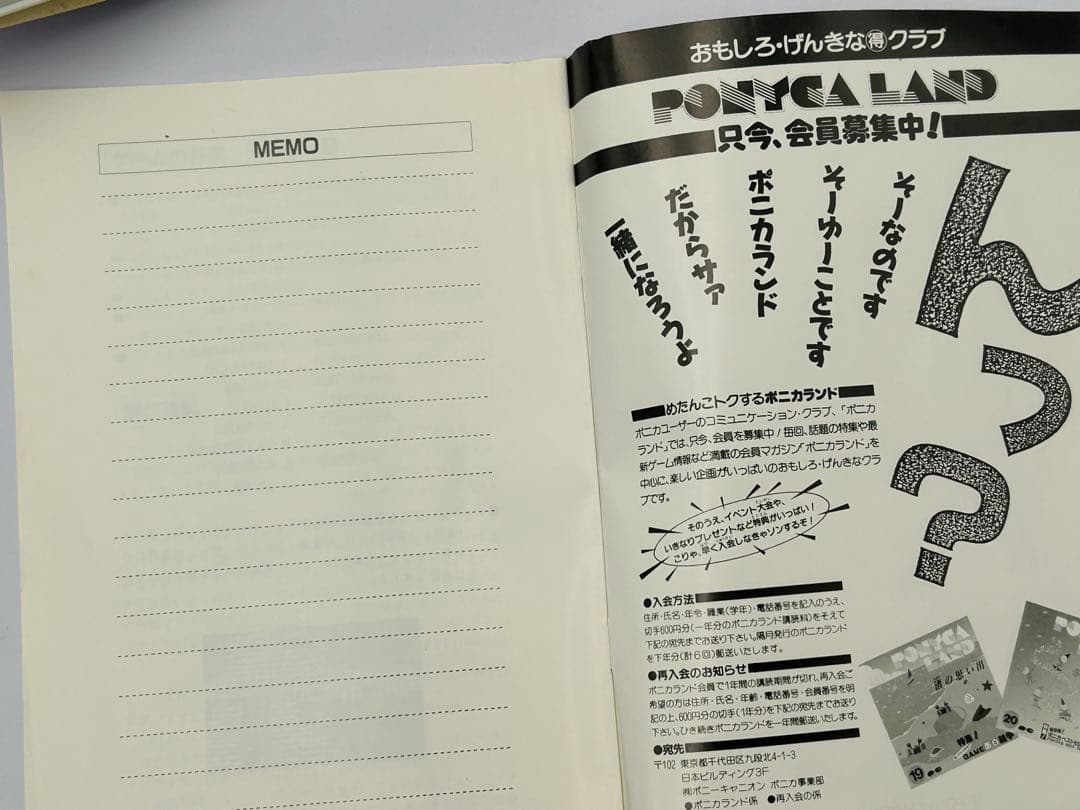 MEMO
おもしろ・げんきな㊕クラブ
PONYCA LAND
只今、会員募集中!
んっ?
そーなのです
そーゆーことです
ポニカランド
だからサァ
一緒になろうよ
めたんこトクするポニカランド
ポニカユーザーのコミュニケーション・クラブ、「ポニカ
ランド」では、只今、会員を募集中!毎回、話題の特集や最
新ゲーム情報など満載の会員マガジン「ポニカランド」を
中心に、楽しい企画がいっぱいのおもしろ・げんきなクラ
ブです。
そのうえ、イベント大会や、
いきなりプレゼントなど特典がいっぱい!
こりゃ、早く入会しなきゃソンするぞ!
●入会方法
住所・氏名・年令・職業(学年)・電話番号を記入のうえ、
切手600円分(一年分のポニカランド購読料)をそえて
下記の宛先までお送り下さい。隔月発行のポニカランド
を下年分(計6回)郵送いたします。
●再入会のお知らせ
ポニカランド会員で1年間の購読期間が切れ、再入会ご
希望の方は住所・氏名・年齢・電話番号・会員番号を明
記の上、600円分の切手(1年分)を下記の宛先までお送り
下さい。ひき続きポニカランドを一年間郵送いたします。
●宛先
〒102 東京都千代田区九段北4-1-3
日本ビルディング3F
㈱ポニーキャニオン ポニカ事業部
●ポニカランド係 ●再入会の係
PONYCA
LAND
渚の思い出
特集!
19
PO
20